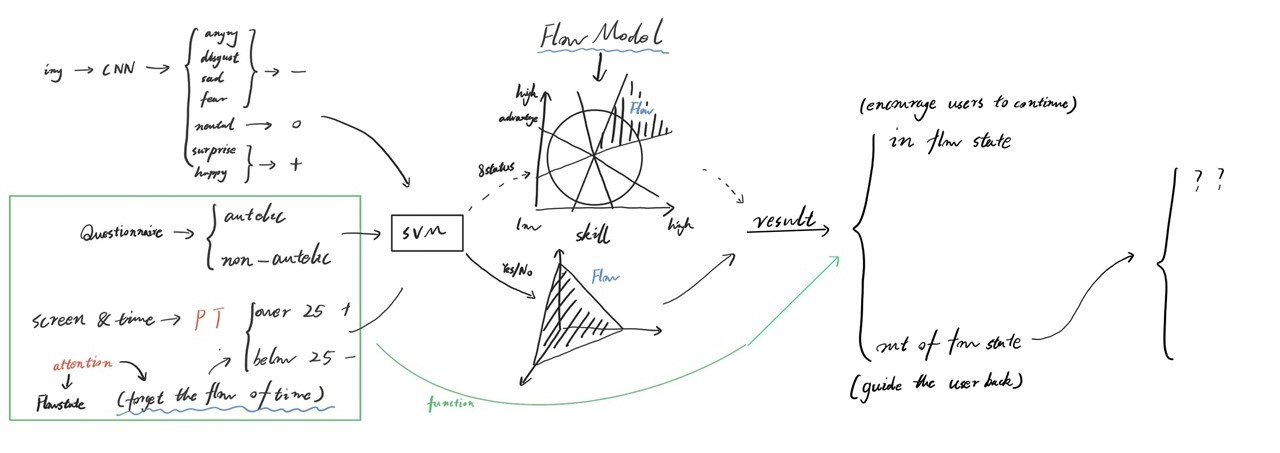 img → CNN →
angry
disgust
sad
fear
→ -
neutal → 0
surprise
happy
→ +
Questionnaire →
autolic
non-autolic
screen & time → PT
over 25 +
below 25 -
attention
Flowstate
(forget the flow of time)
SVM
function
Flow Model
high
advantage
Flow
8 status
low
skill
high
Yes/No
Flow
result
(encourage users to continue)
in flow state
out of flow state
(guide the user back)
? ?